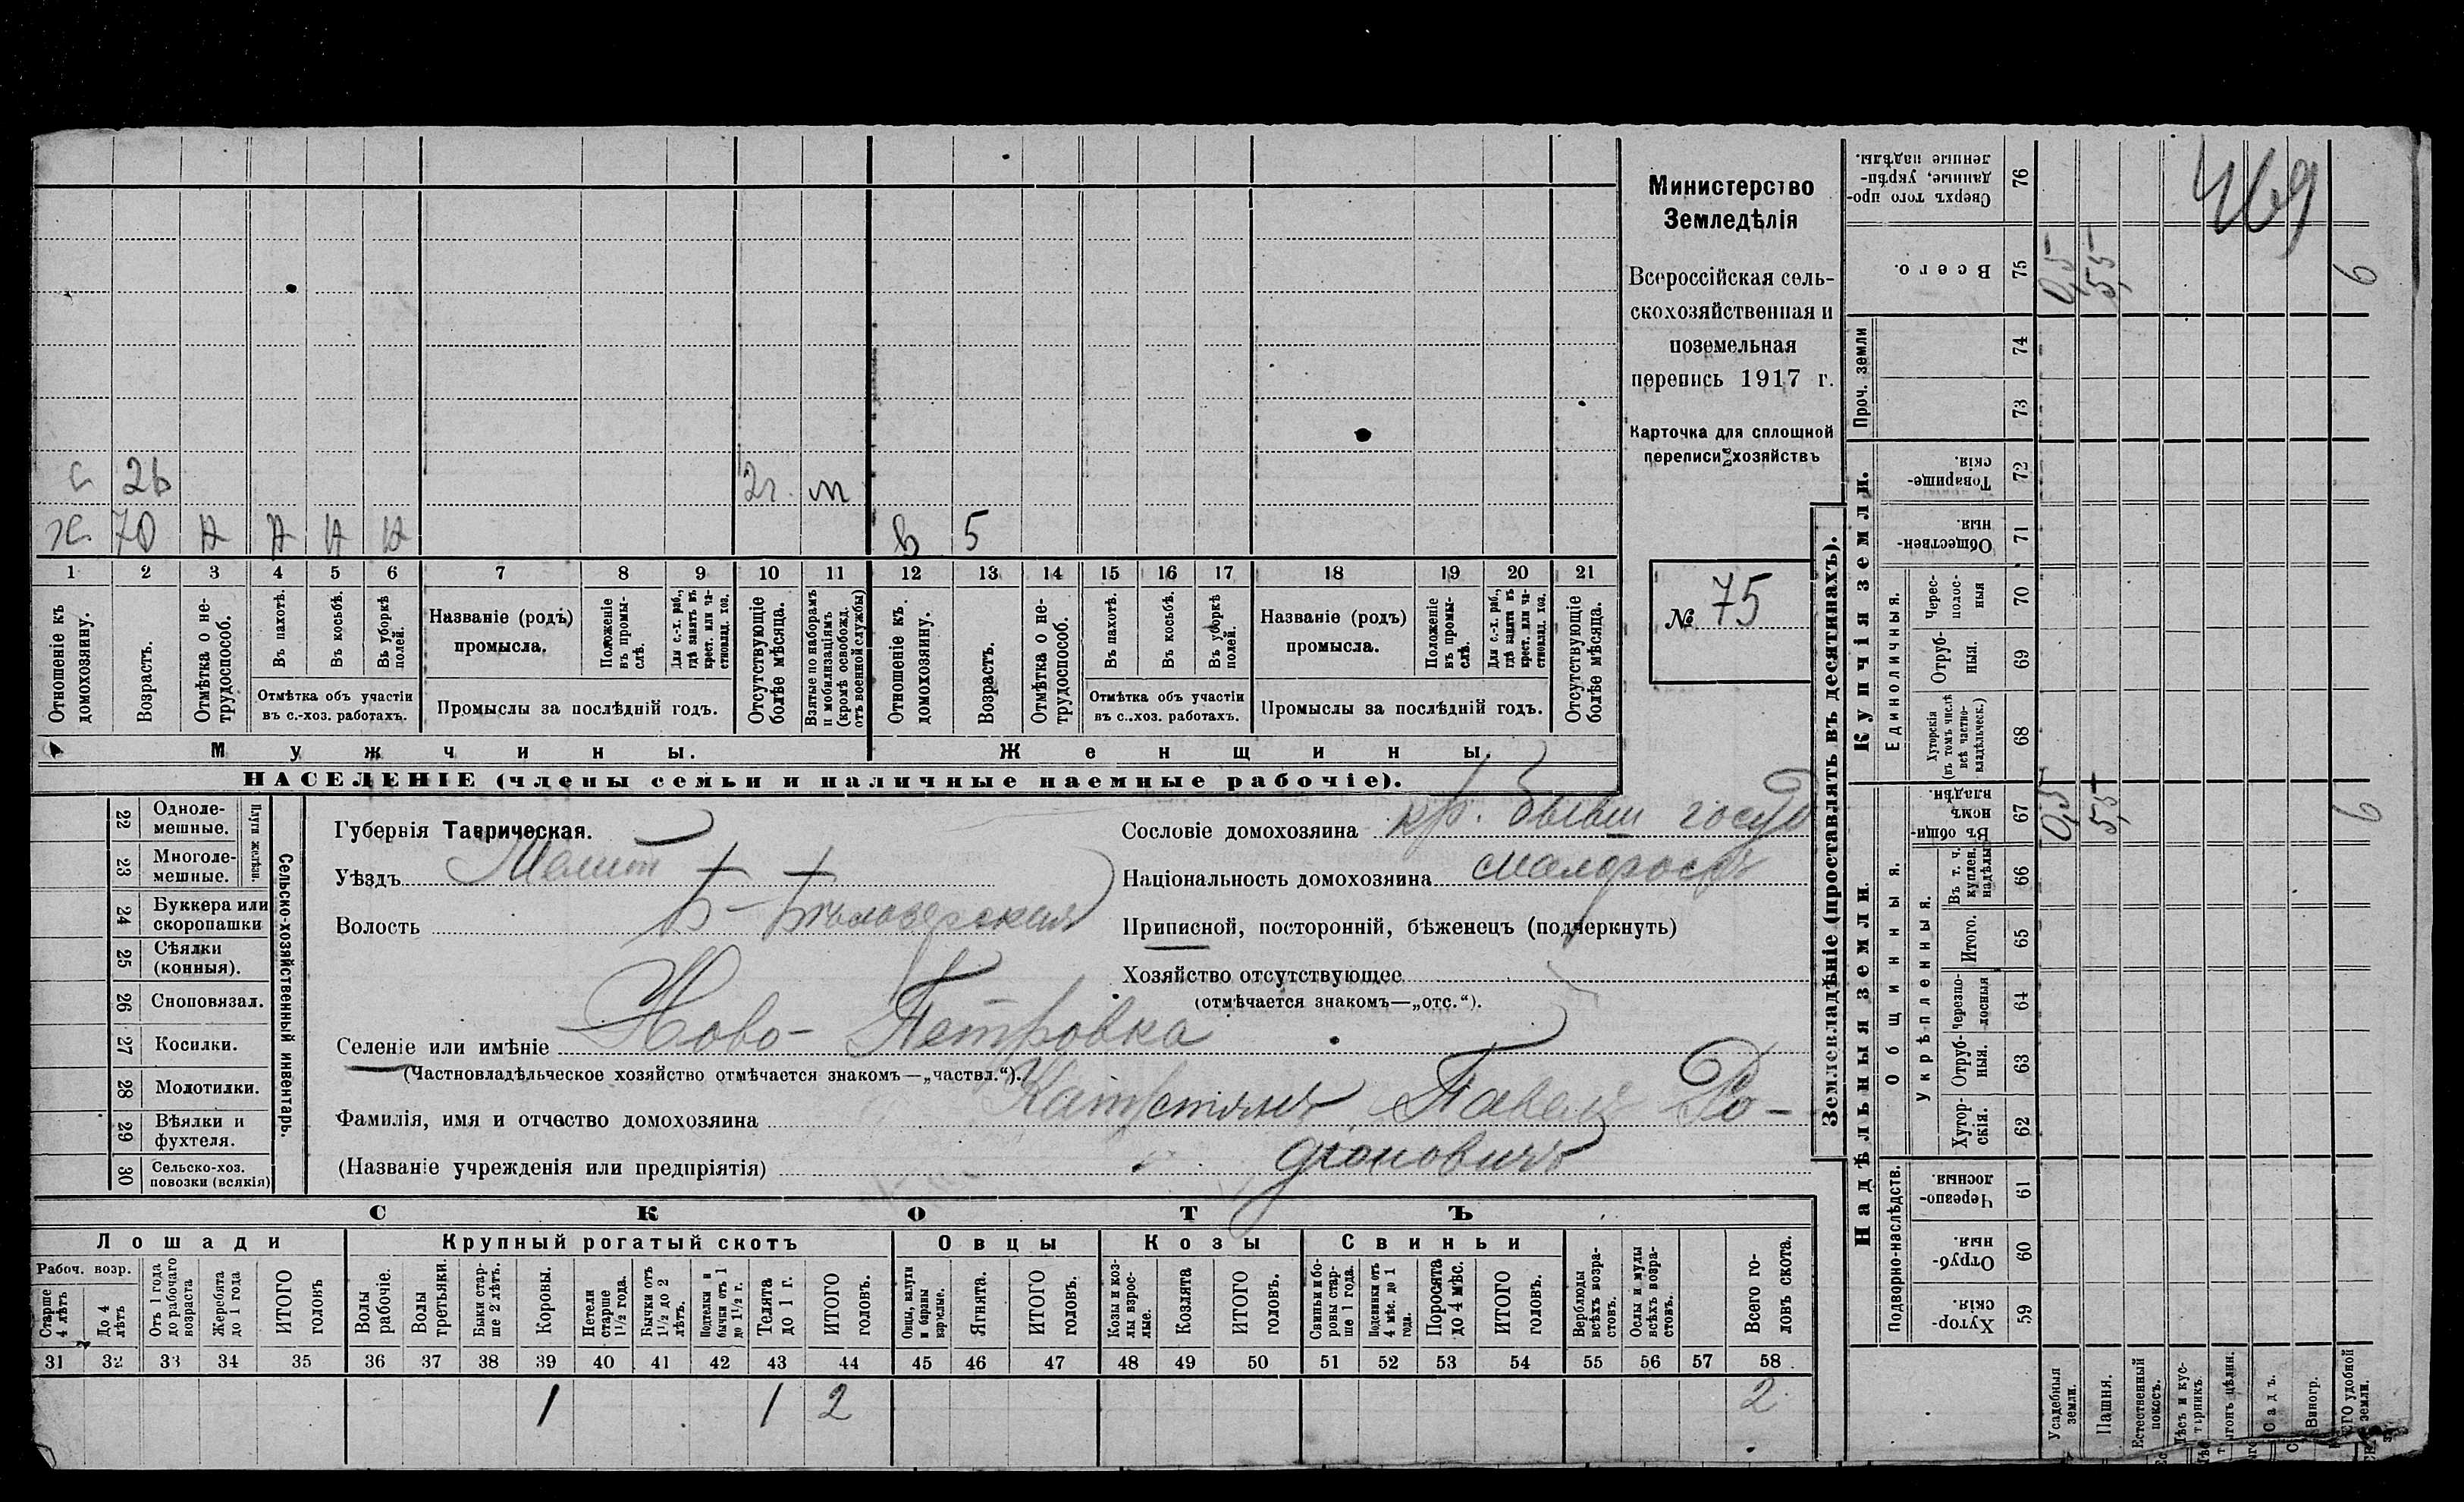 Министерство
Земледѣлія
Всероссійская сель-
скохозяйственная и
поземельная
перепись 1917 г.
Карточка для сплошной
переписи хозяйствъ
№ 75
с 26 2г. м
х. 70 н н н н в 5
1 2 3 4 5 6 7 8 9 10 11 12 13 14 15 16 17 18 19 20 21
Отношеніе къ домохозяину.
Возрастъ.
Отмѣтка о не-трудоспособ.
Въ пахотѣ.
Въ косьбѣ.
Въ уборкѣ полей.
Отмѣтка объ участіи
въ с.-хоз. работахъ.
Названіе (родъ)
промысла.
Положеніе въ промы-слѣ.
Для с.-х. раб., гдѣ занятъ въ крест. или ча-стновлад. хоз.
Промыслы за послѣдній годъ.
Отсутствующіе болѣе мѣсяца.
Взятые по наборамъ и мобилизаціямъ (кромѣ освобожд. отъ военной службы)
Отношеніе къ домохозяину.
Возрастъ.
Отмѣтка о не-трудоспособ.
Въ пахотѣ.
Въ косьбѣ.
Въ уборкѣ полей.
Отмѣтка объ участіи
въ с.-хоз. работахъ.
Названіе (родъ)
промысла.
Положеніе въ промы-слѣ.
Для с.-х. раб., гдѣ занятъ въ крест. или ча-стновлад. хоз.
Промыслы за послѣдній годъ.
Отсутствующіе болѣе мѣсяца.
Мужчины. Женщины.
НАСЕЛЕНІЕ (члены семьи и наличные наемные рабочіе).
Сельско-хозяйственный инвентарь.
Плуги желѣзн.
22 Одноле-мешные.
23 Многоле-мешные.
24 Буккера или скоропашки
25 Сѣялки (конныя).
26 Сноповязал.
27 Косилки.
28 Молотилки.
29 Вѣялки и фухтеля.
30 Сельско-хоз. повозки (всякія)
Губернія Таврическая.
Уѣздъ Мелит
Волость Б-Бѣлозерская
Селеніе или имѣніе Ново-Петровка
(Частновладѣльческое хозяйство отмѣчается знакомъ—„частвл.“).
Фамилія, имя и отчество домохозяина Павелъ Ро-
(Названіе учрежденія или предпріятія) діоновичъ
Сословіе домохозяина кр. бывш госуд
Національность домохозяина малороссъ
Приписной, посторонній, бѣженецъ (подчеркнуть)
Хозяйство отсутствующее
(отмѣчается знакомъ—„отс.“).
СКОТЪ
Лошади Крупный рогатый скотъ Овцы Козы Свиньи
Рабоч. возр.
Старше 4 лѣтъ
До 4 лѣтъ
Отъ 1 года до рабочаго возраста
Жеребята до 1 года
ИТОГО головъ
Волы рабочіе.
Волы третьяки.
Быки стар-ше 2 лѣтъ.
Коровы.
Нетели старше 1½ года.
Бычки отъ 1½ до 2 лѣтъ.
Подтелки и бычки отъ 1 до 1½ г.
Телята до 1 г.
ИТОГО головъ.
Овцы, валухи и бараны взрослые.
Ягнята.
ИТОГО головъ.
Козы и коз-лы взрос-лые.
Козлята
ИТОГО головъ.
Свиньи и бо-ровы стар-ше 1 года.
Подсвинки отъ 4 мѣс. до 1 года.
Поросята до 4 мѣс.
ИТОГО головъ.
Верблюды всѣхъ возра-стовъ.
Ослы и мулы всѣхъ возра-стовъ.
Всего го-ловъ скота.
31 32 33 34 35 36 37 38 39 40 41 42 43 44 45 46 47 48 49 50 51 52 53 54 55 56 57 58
1 1 2 2
Землевладѣніе (проставлять въ десятинахъ).
Надѣльныя земли. Купчія земли. Проч. земли
Подворно-наслѣдств.
Общинныя.
Укрѣпленныя.
Единоличныя.
59 Хутор-скія
60 Отруб-ныя
61 Черезпо-лосныя.
62 Хутор-скія.
63 Отруб-ныя.
64 Черезпо-лосныя
65 Итого.
66 Въ т. ч. куплен. надѣлы
67 Въ общи-номъ владѣн.
68 Хуторскія (въ томъ числѣ всѣ частно-владѣльческ.)
69 Отруб-ныя.
70 Черес-полос-ныя
71 Обществен-ныя
72 Товарище-скія.
73
74
75 Всего.
76 Сверхъ того про-данные, укрѣп-ленные надѣлы.
Усадебныя земли. 0,5 0,5
Пашня. 5,5 5,5
Естественный покосъ.
Лѣсъ и кус-тарникъ
Садъ.
Виногр.
удобной земли. 6 6
469